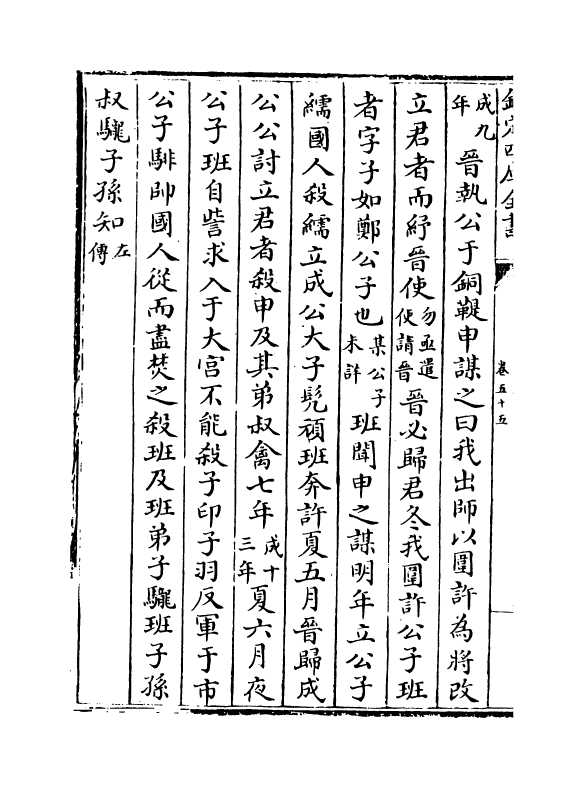 欽定四庫全書
卷五十五
成九年晉執公于銅鞮申謀之曰我出師以圍許為將改
立君者而紓晉使勿亟遣使請晉晉必歸君冬我圍許公子班
者字子如鄭公子也某公子未詳班聞申之謀明年立公子
繻國人殺繻立成公大子髡頑班奔許夏五月晉歸成
公公討立君者殺申及其弟叔禽七年成十三年夏六月夜
公子班自訾求入于大宮不能殺子印子羽反軍于市
公子騑帥國人從而盡焚之殺班及班弟子駹班子孫
叔駹子孫知左傳